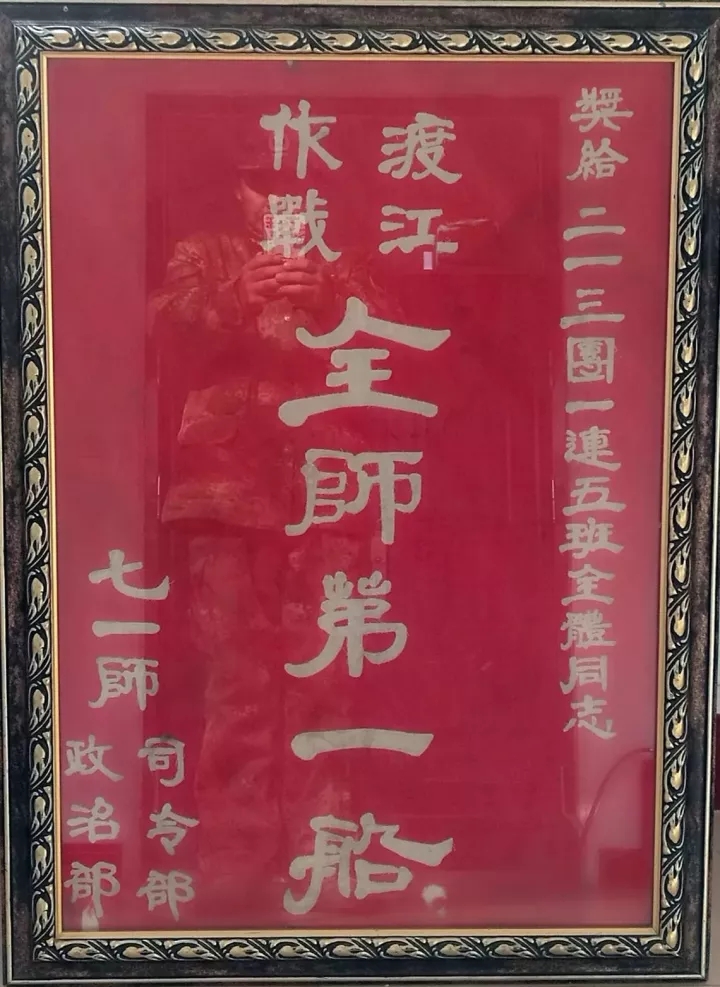 獎給二一三團一連五班全體同志
渡江
作戰
全師第一船
七一師
司令部
政治部